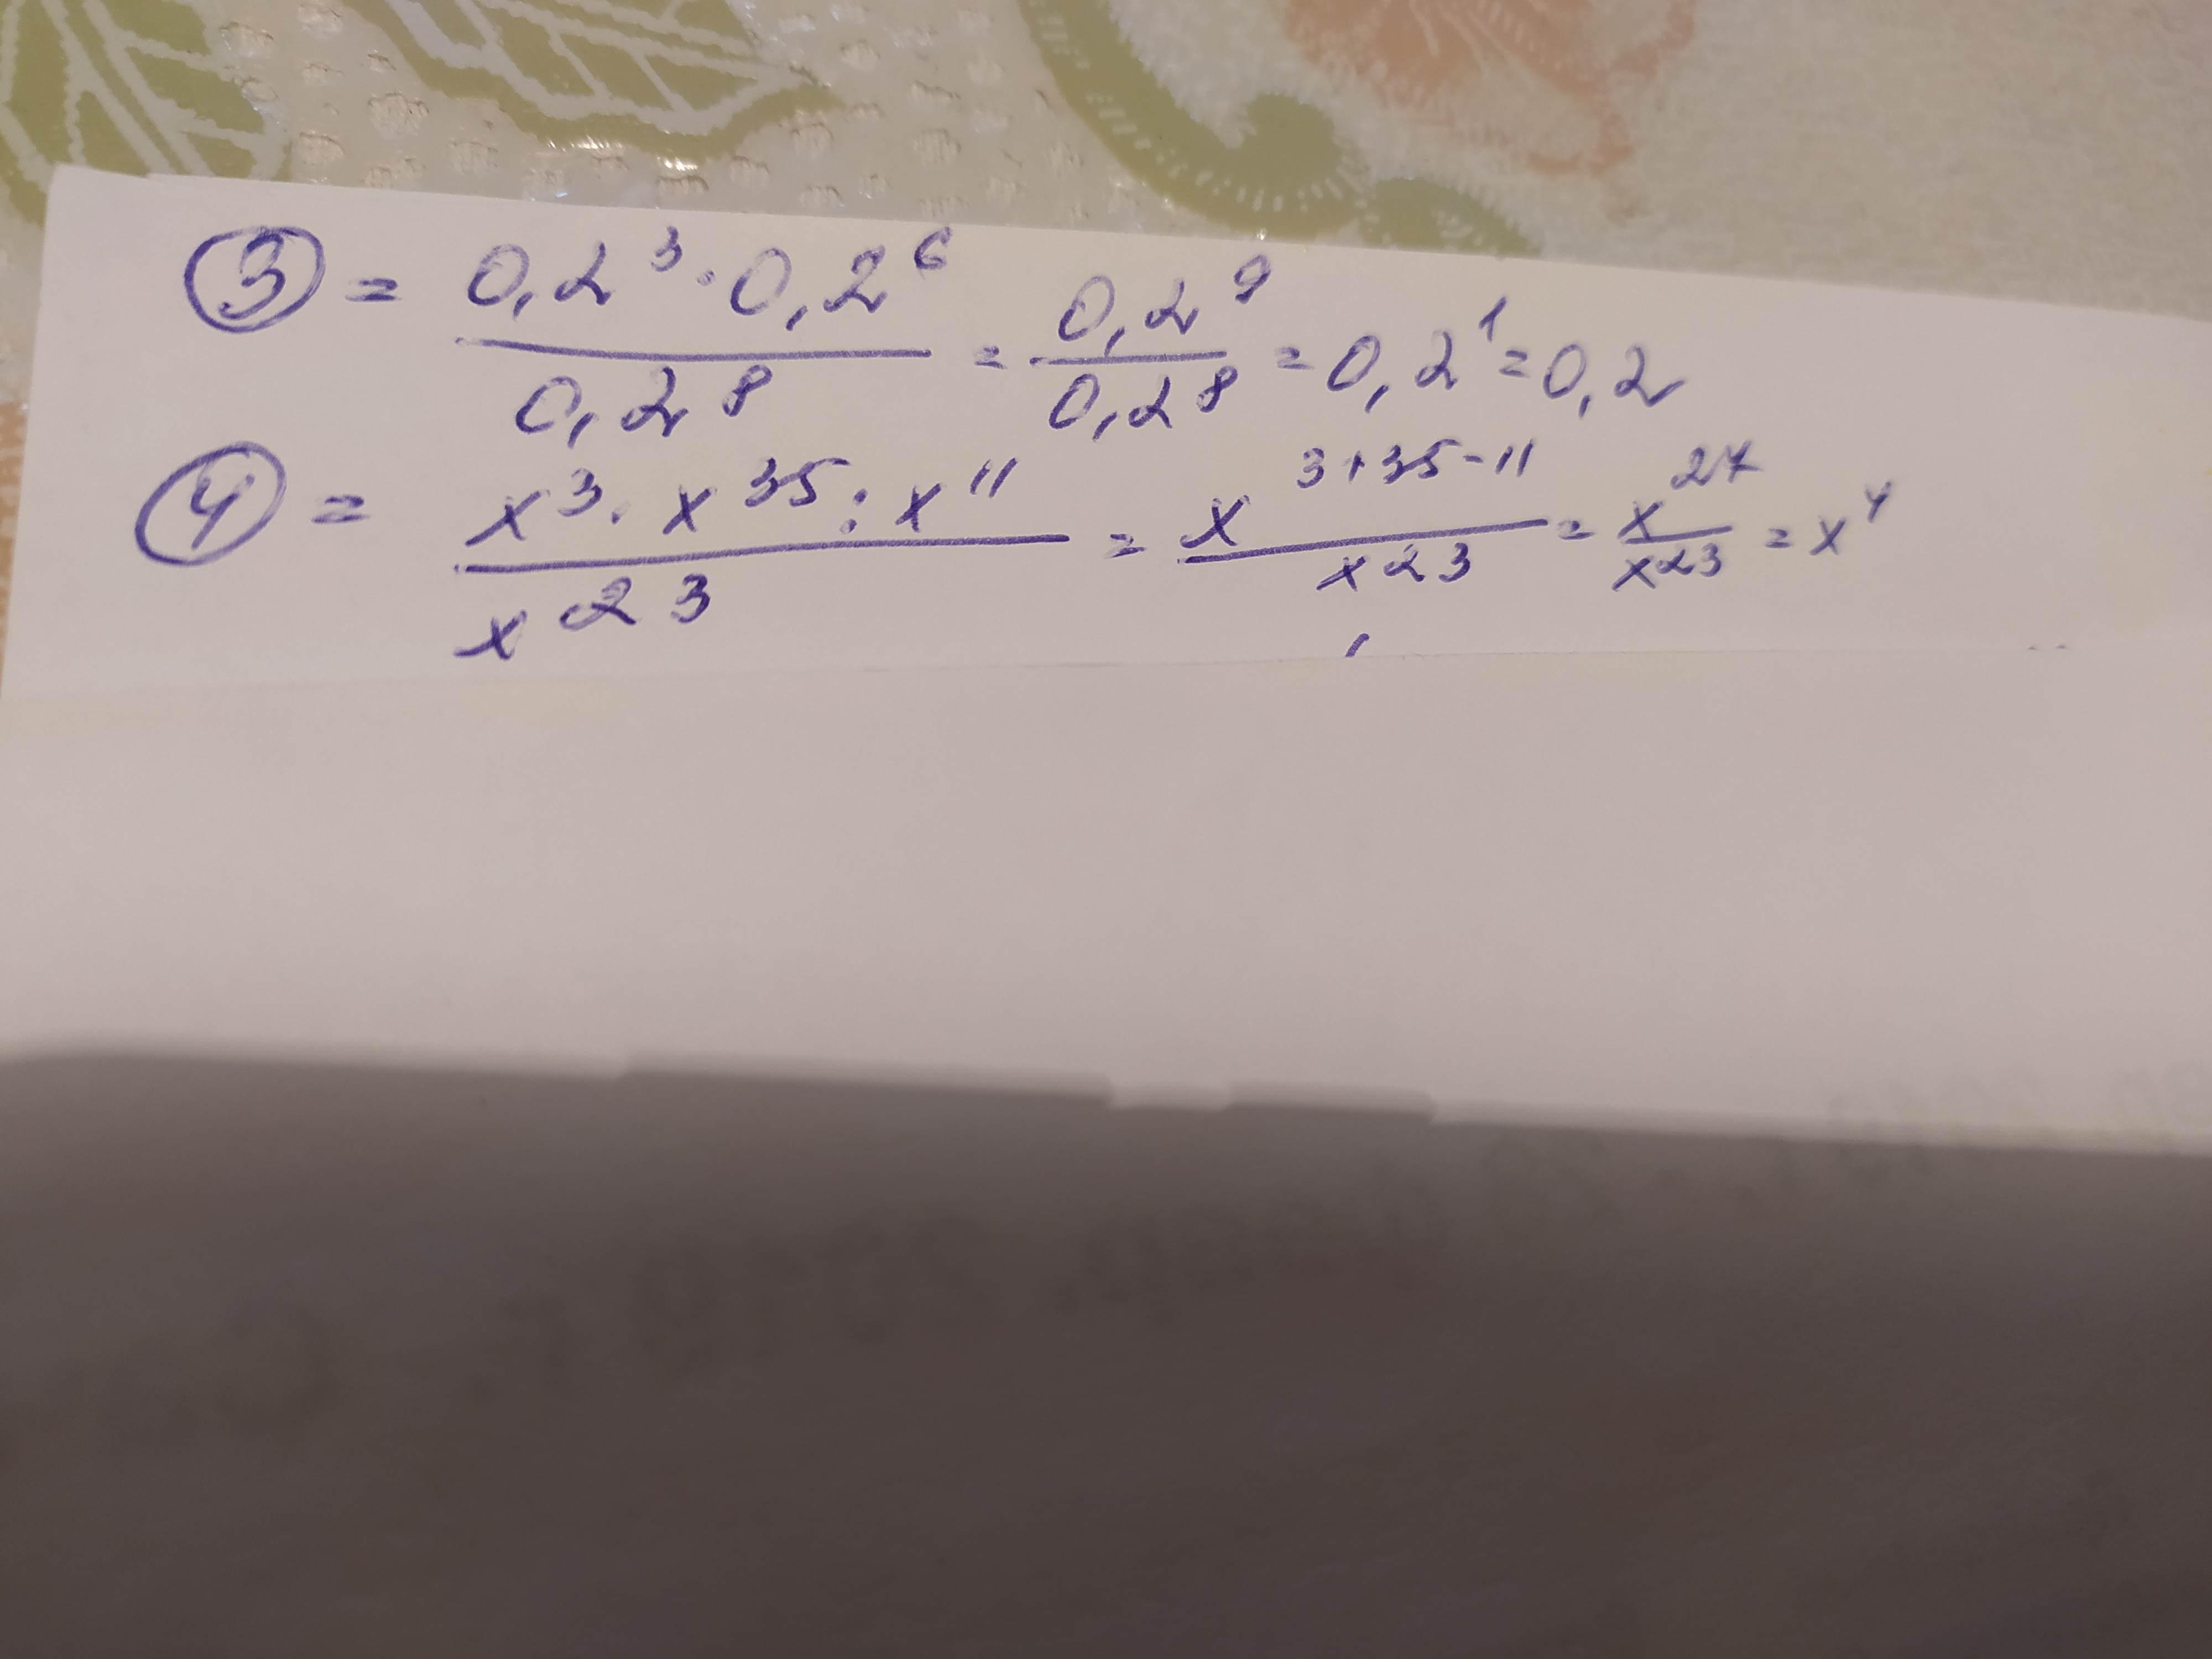 ③ = 0,2³·0,2⁶ / 0,2⁸ = 0,2⁹ / 0,2⁸ = 0,2¹ = 0,2
④ = x³·x³⁵:x¹¹ / x²³ = x³⁺³⁵⁻¹¹ / x²³ = x²⁷ / x²³ = x⁴